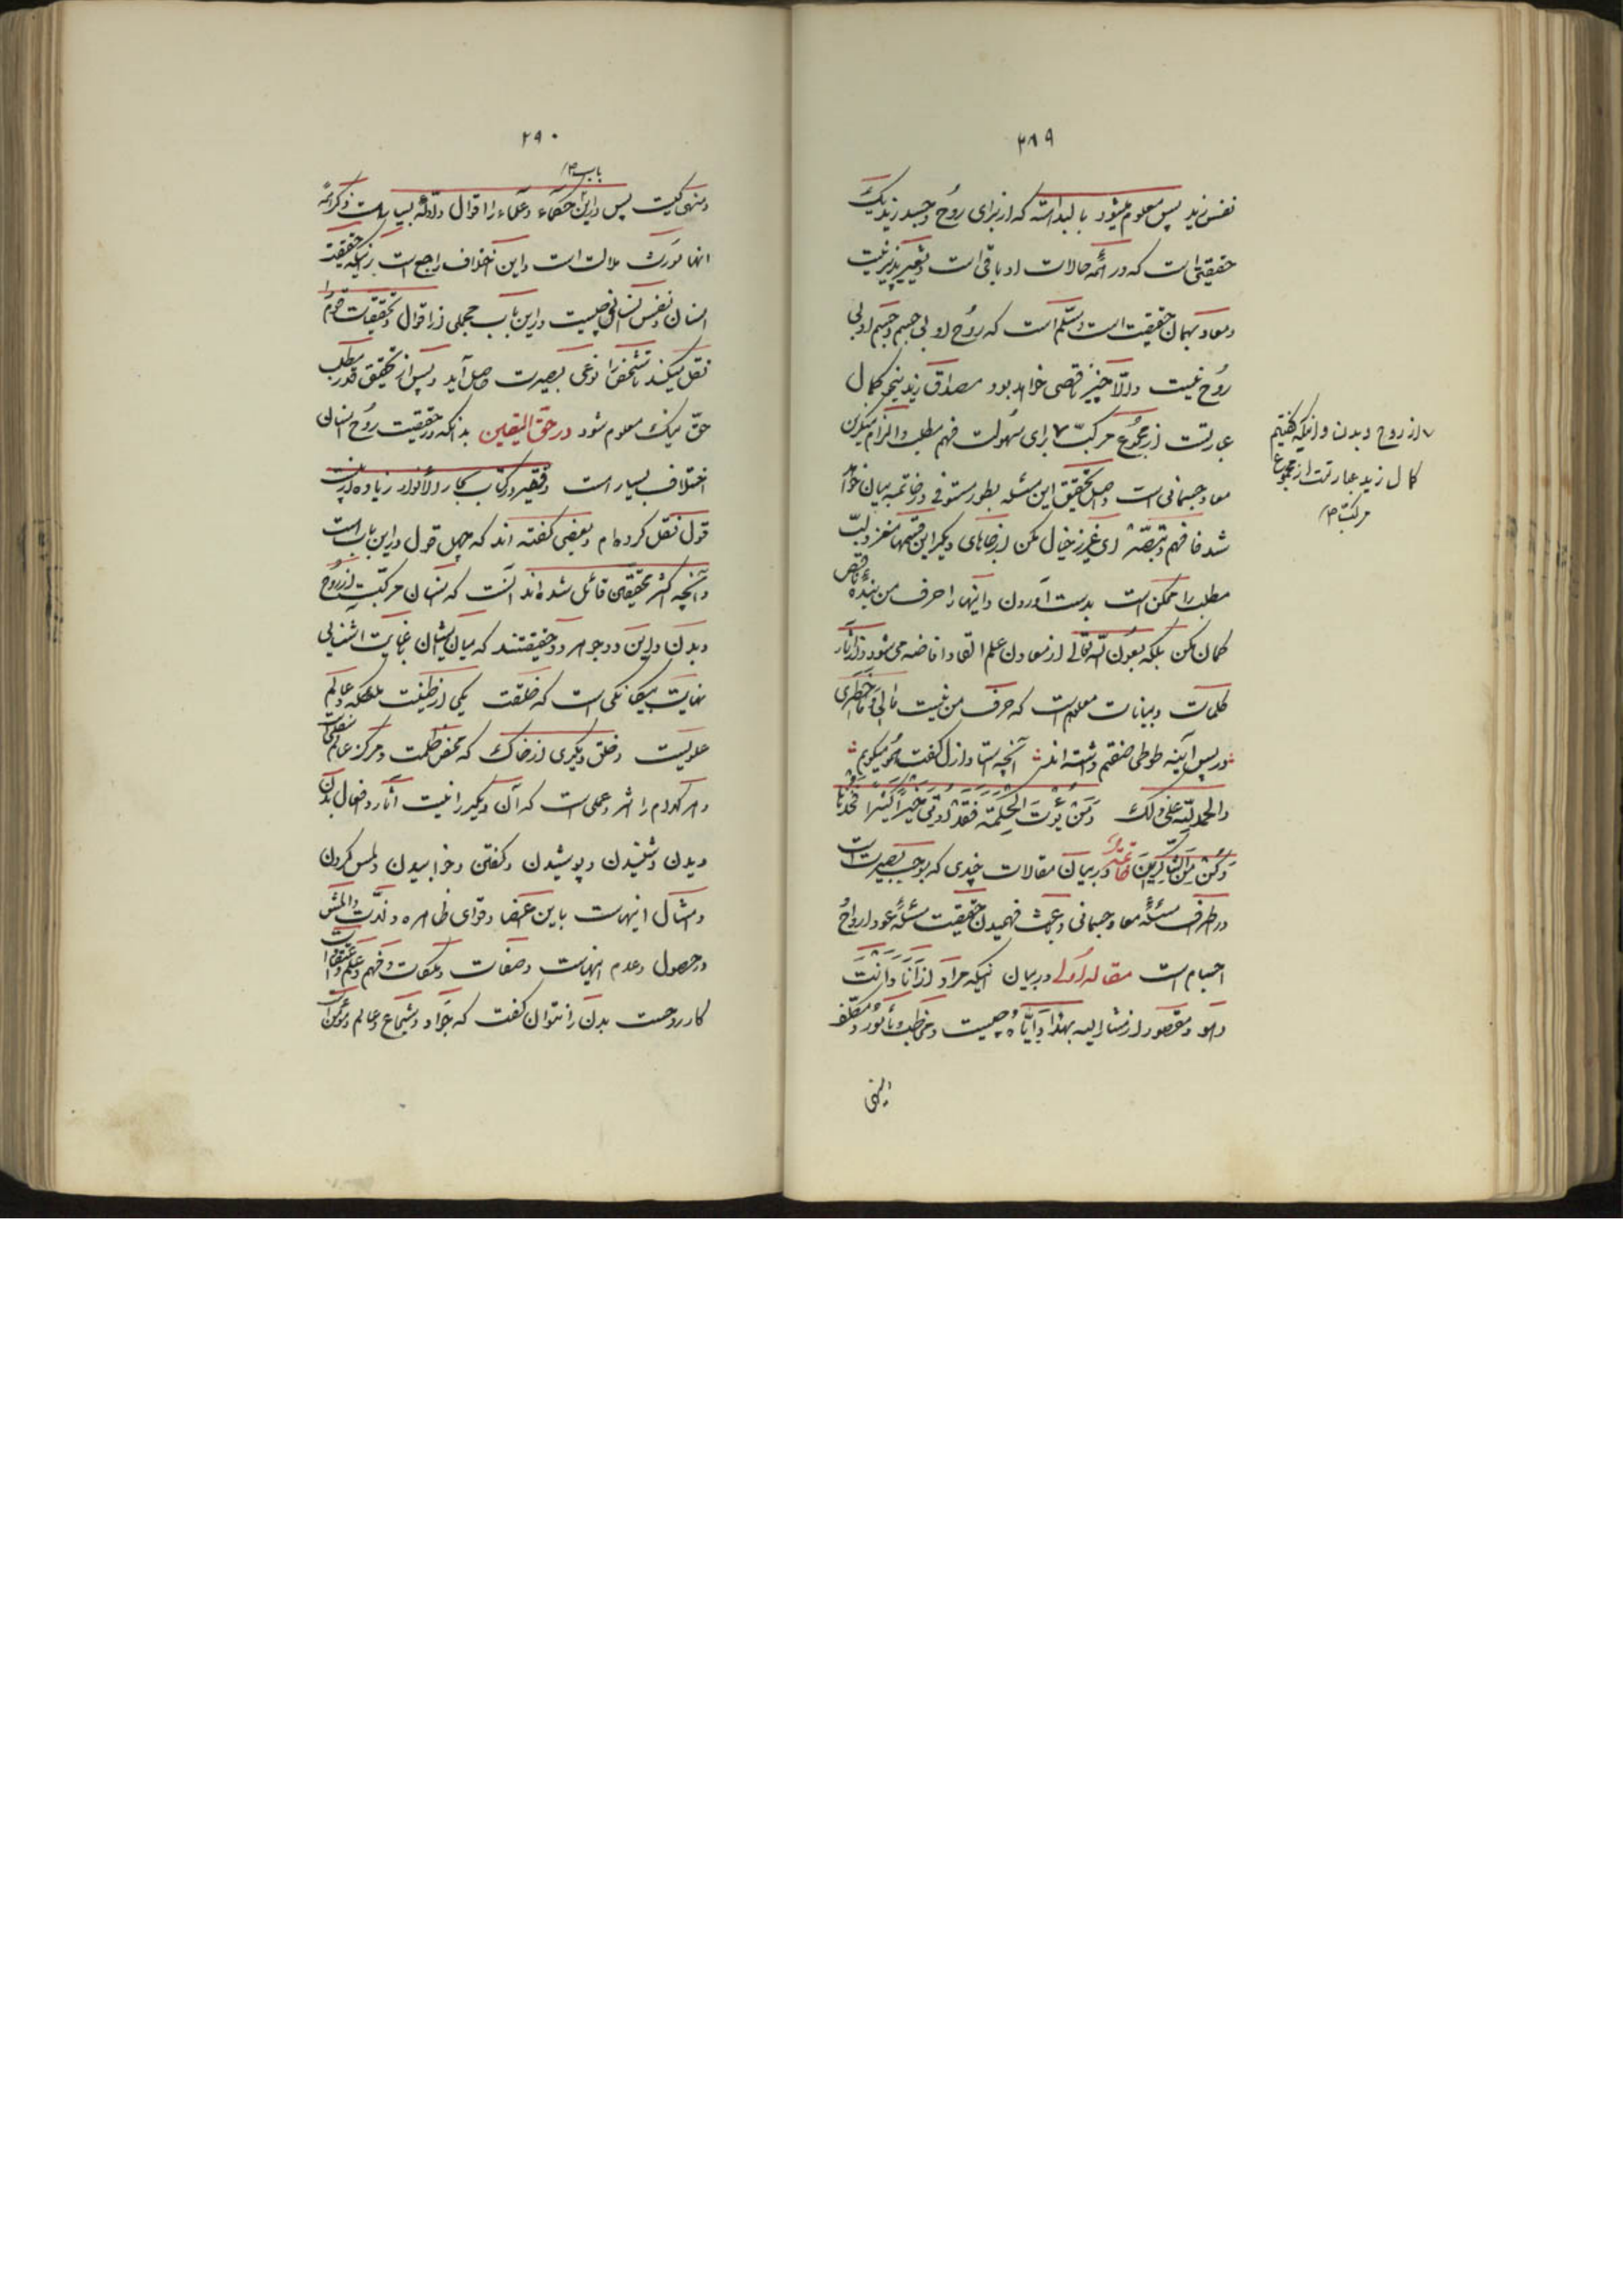 ۲۸۹
نفس زید پس معلوم میشود بالبداهته که از برای روح و جسد زید یک
حقیقتی است که در ائمه حالات او باقی است و تغییر پذیر نیست
و معاد بهمان حقیقت است و مسلّم است که روح او بی جسم و جسم او بی
روح نیست والّا چیز ناقصی خواهد بود مصداق زید بنحو کمال
عبارتست از مجموع مرکبّ ۷ برای سهولت فهم مطلب و الزام منکرین
معاد جسمانی است و اصل تحقیق این مسئله بطور مستوفی در خاتمه بیان خواهد
شد فافهم و تبصّر ای عزیز خیال مکن از جاهای دیگر این قسمها مغز و لبّ
مطلب را ممکن است بدست آوردن و اینها را حرف من بندهٔ ناقص
گمان مکن بلکه بعون الله تعالی از معادن علم القا و افاضه می شود و از آثار
کلمات و بیانات معلوم است که حرف من نیست مالی و خاطری
در پس آینه طوطی صفتم داشته اند آنچه استاد ازل گفت بگو میگویم
والحمد لله علی ذلک و من یؤت الحکمة فقد اوتی خیراً کثیرا فخذ
و کن من الشاکرین خاتمه در بیان مقالات چندی که موجب بصیرت است
در طرف مسئلهٔ معاد جسمانی و باعث فهمیدن حقیقت مسئلهٔ عود ارواح
اجسام است مقاله اولی در بیان اینکه مراد از انا و انت
و هو و مقصود از مشارالیه بهذا و ایّاه چیست و مخاطب و مأمور و مکلف
۷ از روح و بدن و اینکه گفتیم
کمال زید عبارتست از مجموع
مرکبّ ۱۲
۲۹۰
باب ۱۲
و منهی کیست پس در این حکماء و علماء را اقوال و ادله بسیار است ذکر همه
انها مورث ملالت است و این اختلاف راجع است باینکه حقیقت
انسان و نفس انسانی چیست در این باب مجملی از اقوال و تحقیقات قوم را
نقل میکند تا شخص را نوعی بصیرت حاصل آید و پس از تحقیق قدر مطلب
حق نیک معلوم شود در حق الیقین بدانکه در حقیقت روح انسان
اختلاف بسیار است و فقیر در کتاب بحار الأنوار زیاده از بیست
قول نقل کرده ام و بعضی گفته اند که چهل قول در این باب است
و آنچه اکثر محققین قائل شده اند آنست که انسان مرکبست از روح
و بدن و این دو جوهر دو حقیقتند که میان ایشان غایت آشنایی
نهایت بیگانگی است که خلقت یکی از طینت ملائکه و عالم
علویست و خلق دیگری از خاک که محض ظلمت و مرکز عالم سفلی است
و هر کدام را اثر و عملی است که آن دیگر را نیست آثار و افعال بدن
دیدن و شنیدن و پوشیدن و گفتن و خوابیدن و لمس کردن
و امثال اینهاست باین اعضا و قوای ظاهره و لذّت و المش
در حصول و عدم اینهاست و صفات و ملکات و فهم و علم و اعتقادات
کار روحست بدن را نتوان گفت که جواد و شجاع و عالم و مؤمن